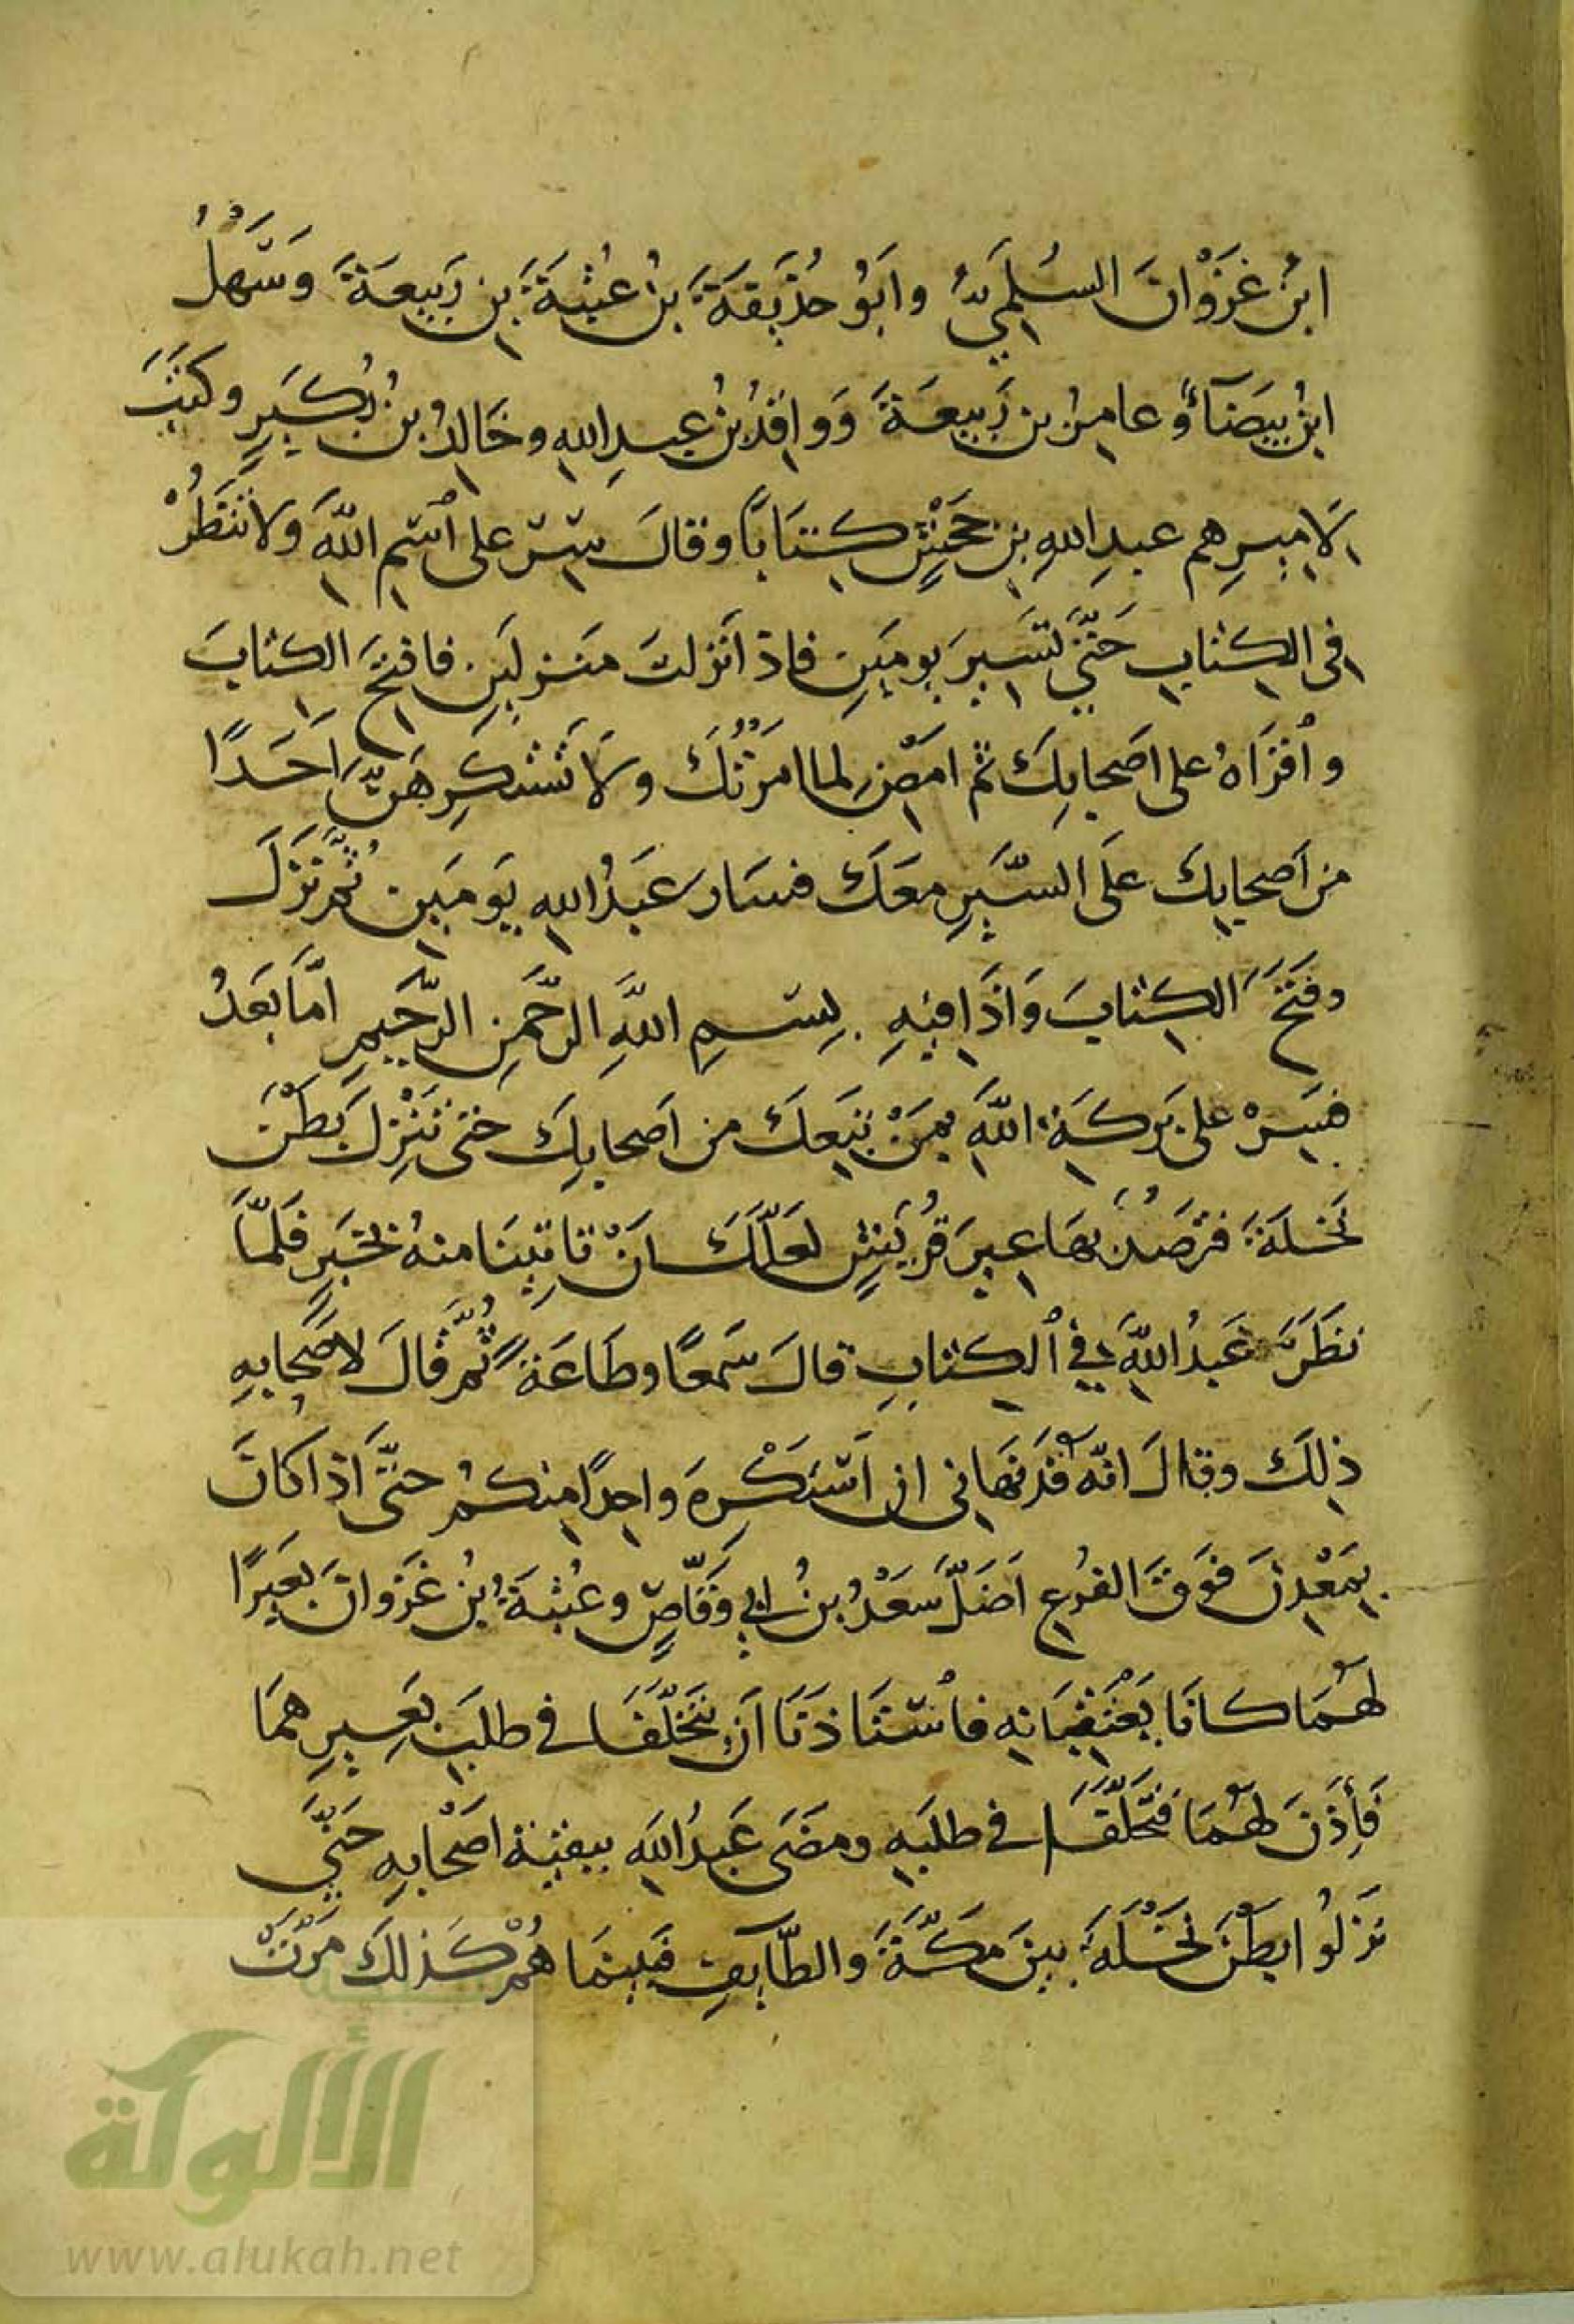 ابنُ غَزْوَانَ السُلَمِيُّ وَابُو حُذَيفَةَ بنُ عُتْبَةَ بنِ رَبِيعَةَ وَسَهْلُ
ابنُ بَيضَآءَ وعامِرُ بن رَبِيعَةَ وَوافِدُ بنُ عبدِ اللهِ وخَالِدُ بنُ بُكَيرٍ وكَتَبَ
لامِيرِهم عبدِ اللهِ بنِ جَحْشٍ كِتَابًا وقالَ سِرْ على ٱسْمِ اللهِ ولا تَنْظُرْ
في الكِتابِ حَتّى تَسِيرَ يومَينِ فاذا نَزلتَ مَنزِلَينِ فافتَح الكتابَ
وٱقْرَاهُ على اصَحابِكَ ثم امضِ لما امَرْتُكَ ولا تَسْتَكرِهَنَّ اَحَدًا
من اَصحابِكَ عَلَى السَّيرِ معَكَ فسَار عَبدُ اللهِ يَومَينِ ثُمَّ نَزَلَ
وفَتَحَ الكِتابَ وَاذَا فيهِ بِسمِ اللَّهِ الرَّحمَنِ الرَّحِيمِ امَّا بَعَدُ
فسِرْ على بَركَةِ اللَّهِ بمَنْ تَبِعَكَ من اَصحابِكَ حتى تَنْزِلَ بَطْنَ
نَخلَةَ فتَرصُدْ بهَا عِيرَ قُرَيشٍ لعَلَّكَ انْ تاتِيَنَا منهُ بخَبَرٍ فَلمَّا
نظَرَ عَبدُ اللَّهِ في ٱلكِتابِ قالَ سَمعًا وطَاعَةً ثُمَّ قَالَ لاصَحابِهِ
ذلِكَ وقالَ انّه قَد نَهانى ان اَسْتَكْرِهَ واحِدًا منكمُ حتَّى اذا كانَ
بِمَعْدِنَ فَوقَ الفُرعِ اَضَلَّ سَعْدُ بنُ ابي وَقّاصٍ وعُتْبَةُ بنُ غَزوانَ بَعيرًا
لهُمَا كانَا يَعْتَقِبَانِهِ فاسْتَاذَنَا انْ يَتَخَلَّفَا في طلَبِ بَعِيرِهمَا
فَأِذَنَ لهُمَا فتَخَلَّفَا في طلَبِهِ ومضَى عَبدُ اللَّهِ ببقيةِ اصْحابِهِ حَتّى
نَزلُوا بَطْنَ نَخْلَةَ بينَ مَكَّةَ والطّآيفِ فبَينمَا هُمْ كَذلكَ مَرَّتْ
الألوكة
www.alukah.net